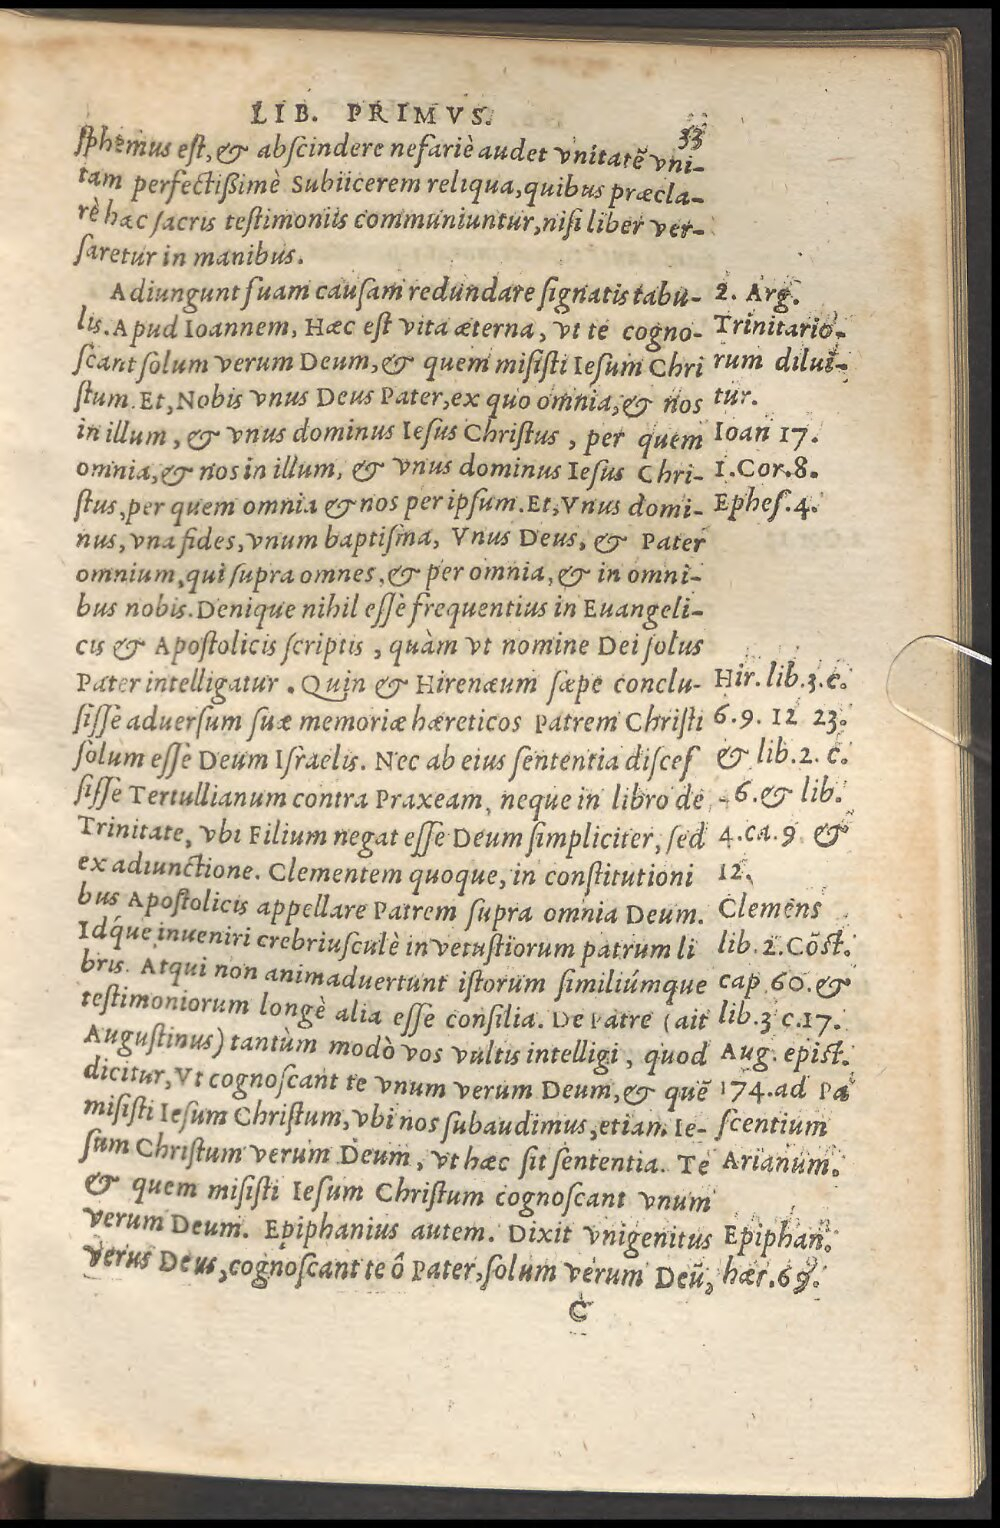 LIB. PRIMVS.
33
sphemus est, & abscindere nefariè audet vnitatẽ vni-
tam perfectißimè Subiicerem reliqua, quibus præcla-
rè hæc sacris testimoniis communiuntur, nisi liber ver-
saretur in manibus.
Adiungunt suam causam redundare signatis tabu-
lis. Apud Ioannem, Hæc est vita æterna, vt te cogno-
scant solum verum Deum, & quem misisti Iesum Chri
stum. Et, Nobis vnus Deus Pater, ex quo omnia, & nos
in illum, & vnus dominus Iesus Christus, per quem
omnia, & nos in illum, & vnus dominus Iesus Chri-
stus, per quem omnia & nos per ipsum. Et, Vnus domi-
nus, vna fides, vnum baptisma, Vnus Deus, & Pater
omnium, qui supra omnes, & per omnia, & in omni-
bus nobis. Denique nihil essè frequentius in Euangeli-
cis & Apostolicis scriptis, quàm vt nomine Dei solus
Pater intelligatur. Quin & Hirenæum sæpe conclu-
sisse aduersum suæ memoriæ hæreticos Patrem Christi
solum esse Deum Israelis. Nec ab eius sententia discess
sisse Tertullianum contra Praxeam, neque in libro de
Trinitate, vbi Filium negat esse Deum simpliciter, sed
ex adiunctione. Clementem quoque, in constitutioni
bus Apostolicis appellare Patrem supra omnia Deum.
Idq́ue inueniri crebriusculè in vetustiorum patrum li
bris. Atqui non animaduertunt istorum similiúmque
testimoniorum longè alia esse consilia. De Patre (ait
Augustinus) tantùm modò vos vultis intelligi, quod
dicitur, Vt cognoscant te vnum verum Deum, & quẽ
misisti Iesum Christum, vbi nos subaudimus, etiam Ie-
sum Christum verum Deum, vt hæc sit sententia. Te
& quem misisti Iesum Christum cognoscant vnum
verum Deum. Epiphanius autem. Dixit vnigenitus
verus Deus, cognoscant te ô Pater, solum verum Deũ,
C
2. Arg.
Trinitario-
rum dilui-
tur.
Ioan 17.
1. Cor. 8.
Ephes. 4.
Hir. lib. 3. c.
6. 9. 12 23.
& lib. 2. c.
6. & lib.
4. ca. 9 &
12.
Clemens
lib. 2. Cõst.
cap 60. &
lib. 3 c. 17.
Aug. epist.
174. ad Pa
scentium
Arianum.
Epiphan.
hær. 69.